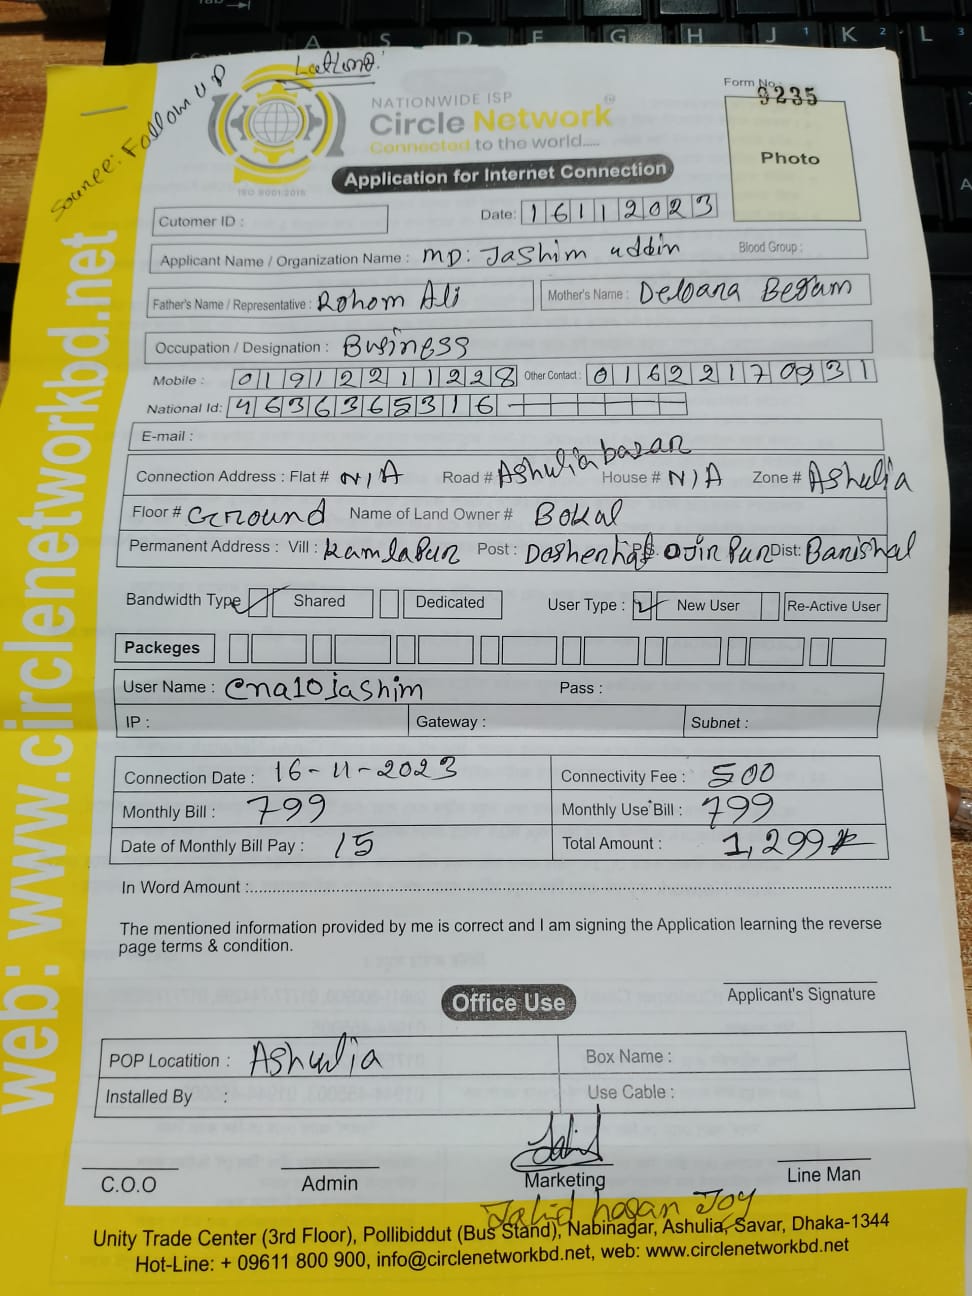 Source: Follow UP
Form No: 9235
NATIONWIDE ISP
Circle Network
Connected to the world.....
ISO 9001:2015
Photo
Application for Internet Connection
Cutomer ID : Date: 16112023
Applicant Name / Organization Name : MD: Jashim uddin Blood Group :
Father's Name / Representative : Rohom Ali Mother's Name : Deloara Begam
Occupation / Designation : Business
Mobile : 01912211228 Other Contact : 01622170931
National Id: 4636365316
E-mail :
Connection Address : Flat # N/A Road # Ashulia bazar House # N/A Zone # Ashulia
Floor # Ground Name of Land Owner # Bokul
Permanent Address : Vill : Kamlapur Post : P.S. Dist: Barishal
Bandwidth Type Shared Dedicated User Type : New User Re-Active User
Packeges
User Name : cna10jashim Pass :
IP : Gateway : Subnet :
Connection Date : 16-11-2023 Connectivity Fee : 500
Monthly Bill : 799 Monthly Use Bill : 799
Date of Monthly Bill Pay : 15 Total Amount : 1,299
In Word Amount :
The mentioned information provided by me is correct and I am signing the Application learning the reverse
page terms & condition.
Applicant's Signature
Office Use
POP Locatition : Ashulia Box Name :
Installed By : Use Cable :
C.O.O Admin Marketing Line Man
Jahid hasan Joy
Unity Trade Center (3rd Floor), Pollibiddut (Bus Stand), Nabinagar, Ashulia, Savar, Dhaka-1344
Hot-Line: + 09611 800 900, info@circlenetworkbd.net, web: www.circlenetworkbd.net
web: www.circlenetworkbd.net